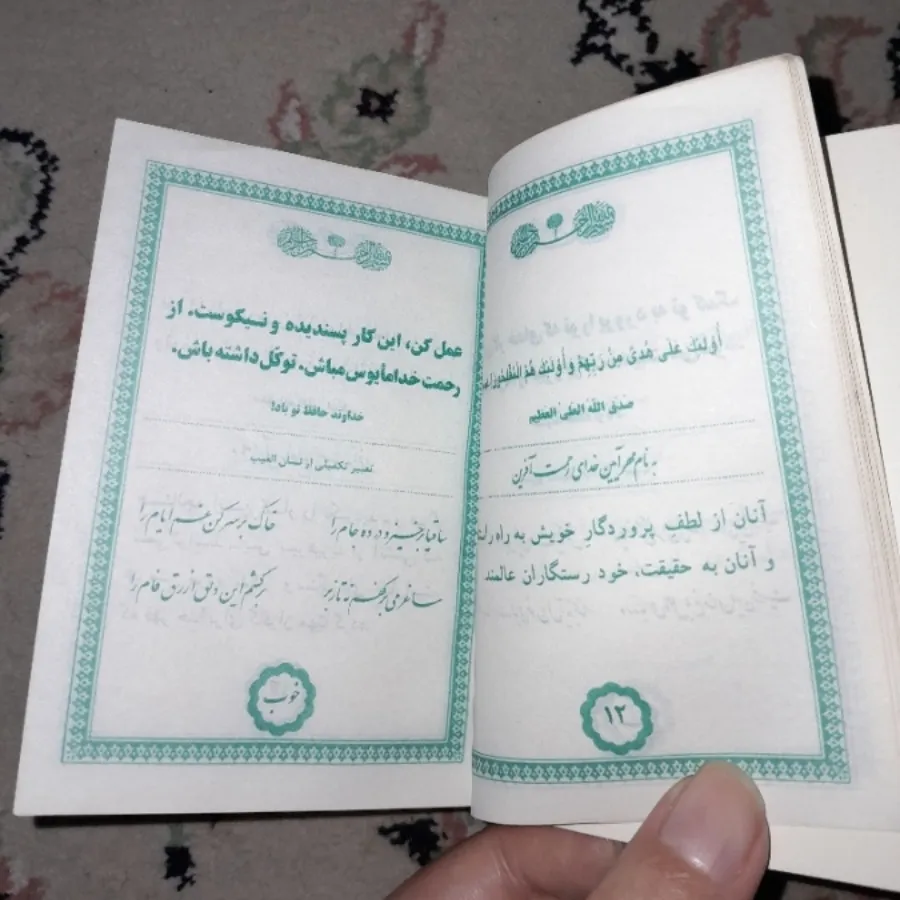 أُوْلَئِكَ عَلَى هُدًى مِنْ رَبِّهِمْ وَ أُوْلَئِكَ هُمُ الْمُفْلِحُونَ
صدق الله العلی العظیم
به نام مهرآیین خدای رحمت آفرین
آنان از لطفِ پروردگارِ خویش به راه راست
و آنان به حقیقت، خود رستگاران عالمند
۱۲
عمل کن، این کار پسندیده و نیکوست. از
رحمت خدا مأیوس مباش. توکّل داشته باش.
خداوند حافظ تو باد!
تفسیر تکمیلی از لسان الغیب
ساقیا برخیز و در ده جام را خاک بر سر کن غم ایام را
ساغر می بر کفم نه تا ز بر برکشم این دلق ازرق فام را
خوب